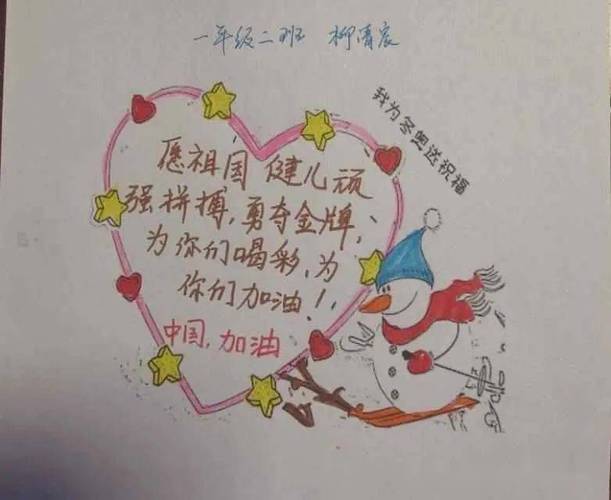 一年级二班 柳清宸
我为冬奥送祝福
愿祖国健儿顽
强拼搏,勇夺金牌,
为你们喝彩,为
你们加油!
中国,加油